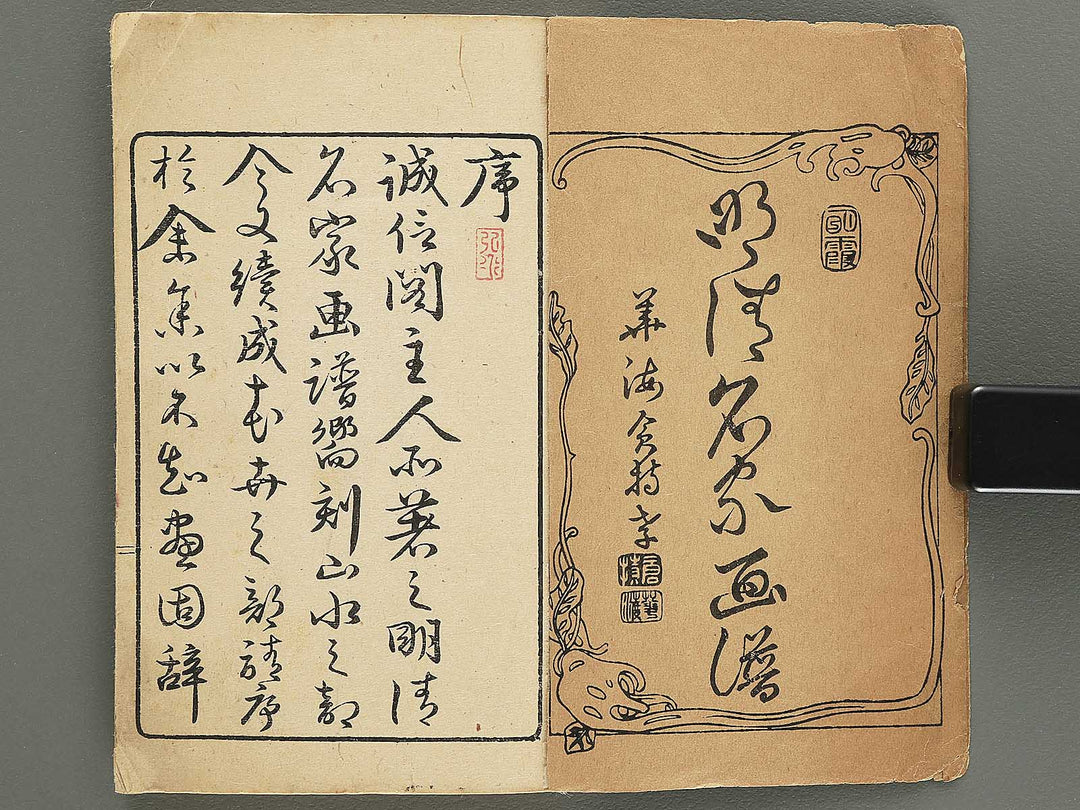 明清名家画譜
華海
序
誠信閣主人所著之明清
名家画譜嚮刻山水之部
今又續成花卉之部請序
於余余以不知畫固辞